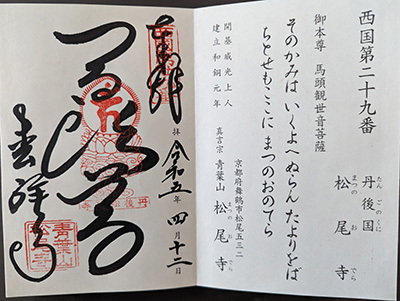 西国第二十九番
丹後国 松尾寺
たんごのくに まつのおでら
御本尊 馬頭観世音菩薩
そのかみは いくよへぬらん たよりをば
ちとせもここに まつのおのてら
開基威光上人
建立和銅元年
京都府舞鶴市松尾五三二
真言宗 青葉山 松尾寺
まつのおでら
奉拝
拝 令和五年 四月十二日
松尾寺